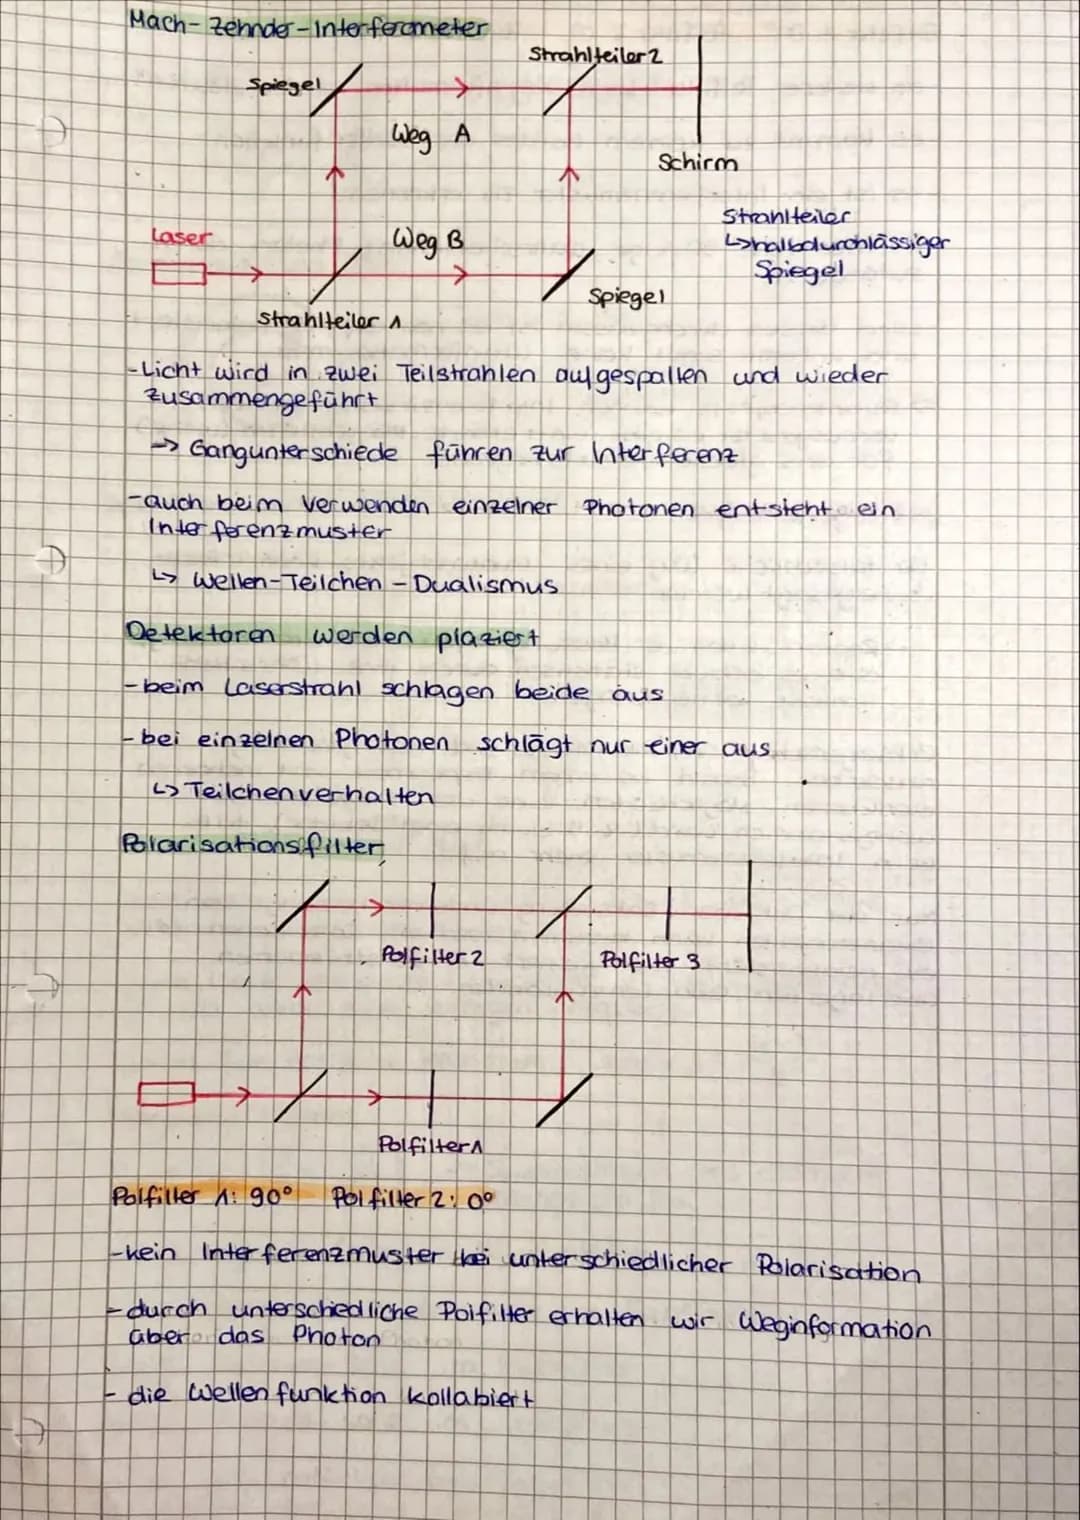 Mach-Zehnder-Interferometer
Strahlteiler 2
Spiegel
Weg A
Schirm
Strahlteiler
Laser
Weg B
↳halbdurchlässiger
Spiegel
Spiegel
Strahlteiler 1
-Licht wird in zwei Teilstrahlen aufgespalten und wieder
zusammengeführt
→ Gangunterschiede führen zur Interferenz
-auch beim Verwenden einzelner Photonen entsteht ein
Interferenzmuster
↳ Wellen-Teilchen-Dualismus
Detektoren werden plaziert
-beim Laserstrahl schlagen beide aus
-bei einzelnen Photonen schlägt nur einer aus
↳ Teilchenverhalten
Polarisationsfilter
Polfilter 2
Polfilter 3
Polfilter 1
Polfilter 1: 90° Polfilter 2: 0°
-kein Interferenzmuster bei unterschiedlicher Polarisation
-durch unterschiedliche Polfilter erhalten wir Weginformation
über das Photon
- die Wellenfunktion kollabiert